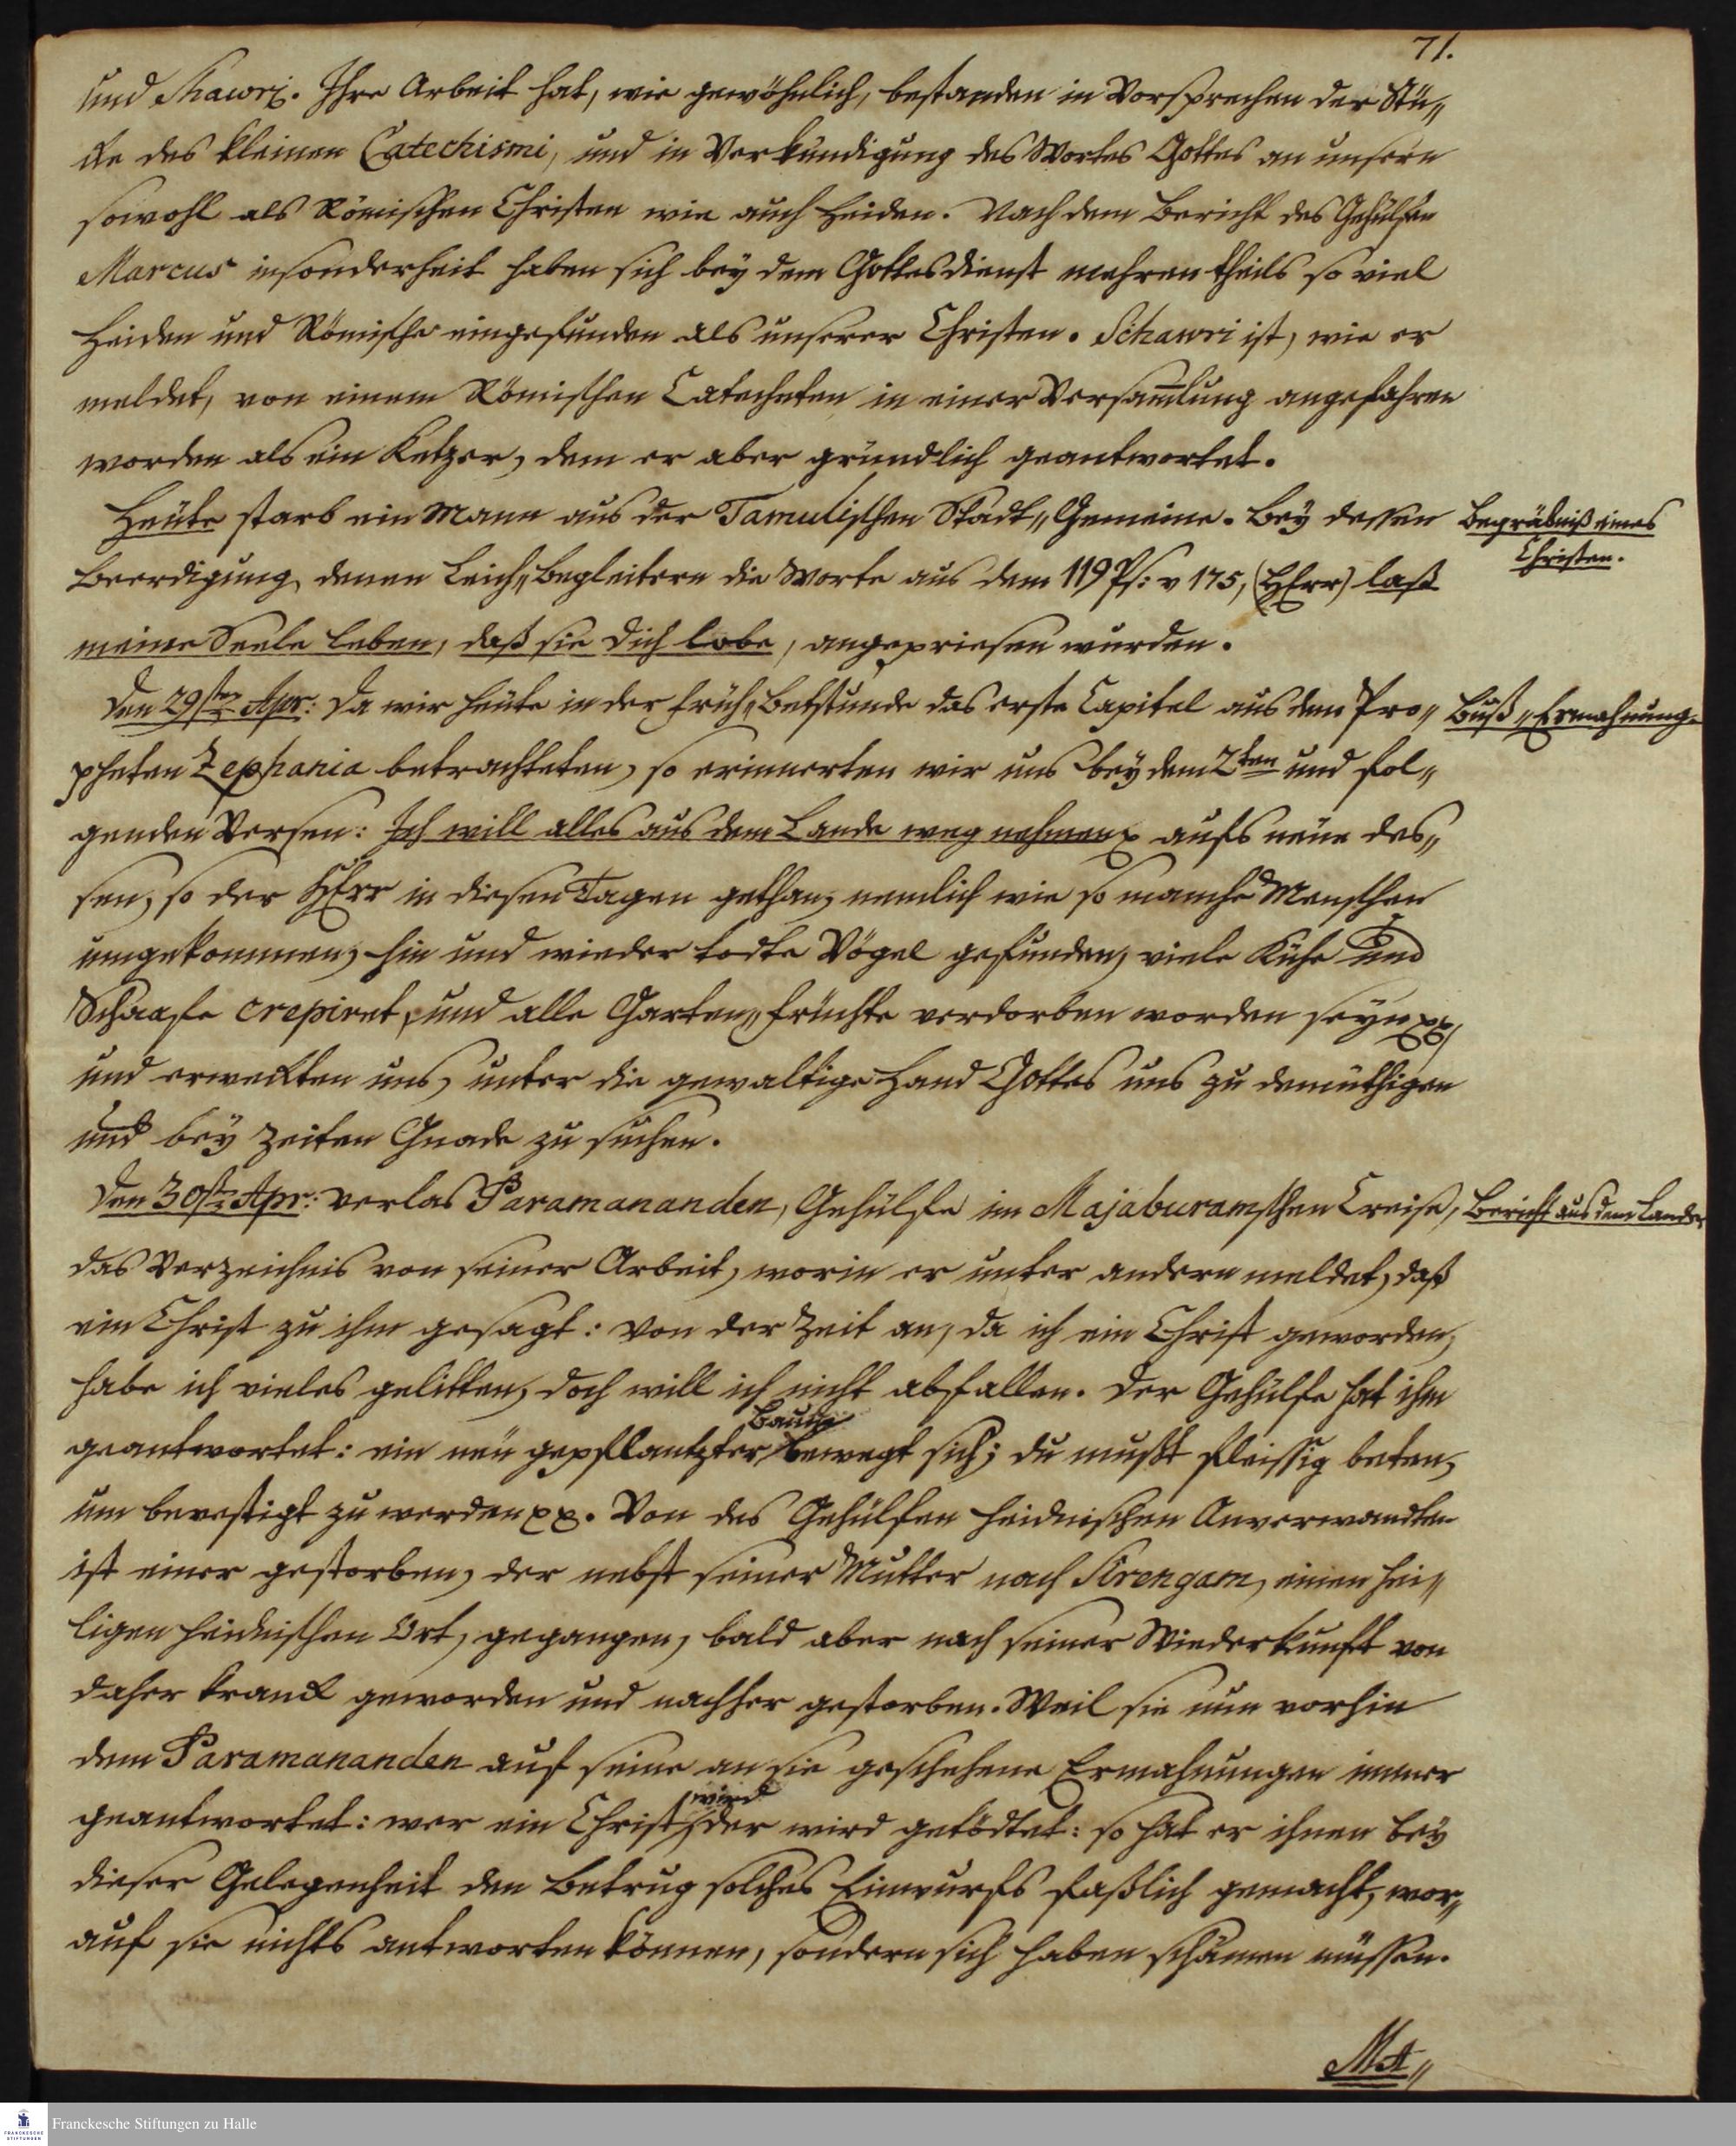 71.
und Shawri. Ihre Arbeit hat, wie gewöhnlich, bestanden in Vorsprechen der Stü„
cke des kleinen Catechismi, und in Verkündigung des Wortes Gottes an unsere
sowohl als Römischen Christen wie auch Heiden. Nach dem Bericht des Gehülfen
Marcus insonderheit haben sich bey dem Gottesdienst mehrentheils so viel
Heiden und Römische eingefunden als unserer Christen. Schawri ist, wie er
meldet, von einem Römischen Catecheten in einer Versam̅lung angefahren
worden als ein Ketzer, dem er aber gründlich geantwortet.
Heute starb ein Mann aus der Tamulischen Stadt„Gemeine. Bey dessen
Begräbniß eines
Christen.
Beerdigung denen Leich„Begleitern die Worte aus dem 119 Ps: v 175, (HErr) laß
meine Seele leben, daß sie dich lobe, angepriesen wurden.
Den 29sten Apr: Da wir heute in der Früh„Betstunde das erste Capitel aus dem Pro„
Buß„Ermahnung.
pheten Zephania betrachteten, so erinnerten wir uns bey dem 2ten und fol„
genden Versen: Ich will alles aus dem Lande weg nehmen p aufs neüe des„
sen, so der HErr in diesen Tagen gethan, nemlich wie so manche Menschen
umgekommen, hin und wieder todte Vögel gefunden, viele Kühe und
Schaafe crepiret, und alle Garten„Früchte verdorben worden seyn pp,
und erweckten uns, unter die gewaltige Hand Gottes uns zu demüthigen
und bey Zeiten Gnade zu suchen.
Den 30sten Apr: verlas Paramananden, Gehülfe im Majaburamschen Creise,
Bericht aus dem Lande.
das Verzeichnis von seiner Arbeit, worin er unter andern meldet, daß
ein Christ zu ihm gesagt: Von der Zeit an, da ich ein Christ geworden,
habe ich vieles gelitten, doch will ich nicht abfallen. Der Gehülfe hat ihm
geantwortet: ein neü gepflantzter Baum bewegt sich; du mußt fleissig beten,
um bevestigt zu werden pp. Von des Gehülfen heidnischen Anverwandten
ist einer gestorben, der nebst seiner Mutter nach Sirengam, einen hei„
ligen heidnischen Ort, gegangen, bald aber nach seiner Wiederkunft von
daher kranck geworden und nachher gestorben. Weil sie nun vorhin
dem Paramananden auf seine an sie geschehene Ermahnungen immer
geantwortet: wer ein Christ wird, der wird getödtet: so hat er ihnen bey
dieser Gelegenheit den Betrug solches Einwurfs faßlich gemacht, wor„
auf sie nichts antworten können, sondern sich haben schämen müssen.
Franckesche Stiftungen zu Halle
FRANCKESCHE
STIFTUNGEN